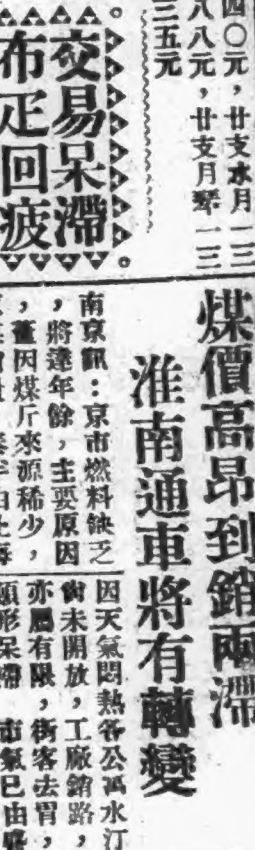 四〇元，廿支水月一三
八八元，廿支月琴一三
三五元
交易呆滯
布疋回疲
煤價高昂到銷兩滯
淮南通車將有轉變
南京訊：京市燃料缺乏
，將達年餘，主要原因
，舊因煤斤來源稀少，
因天氣悶熱各公馮水汀
尚未開放，工廠銷路，
亦屬有限，街客去胃，
頭形呆滯 市氣已由